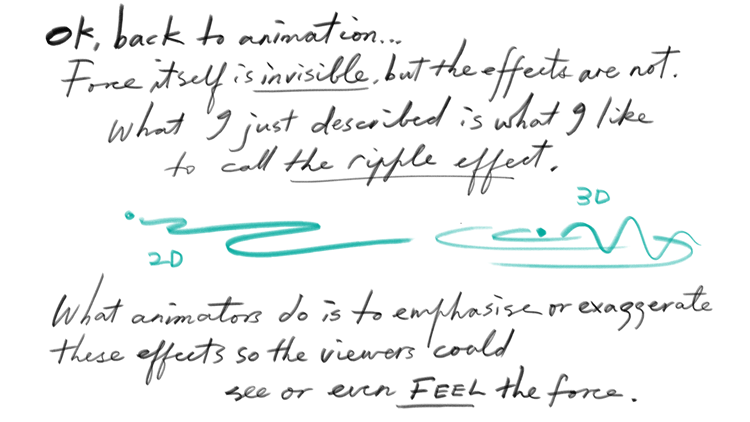 Ok, back to animation...
Force itself is invisible, but the effects are not.
What I just described is what I like
to call the ripple effect.
3D
2D
What animators do is to emphasise or exaggerate
these effects so the viewers could
see or even FEEL the force.